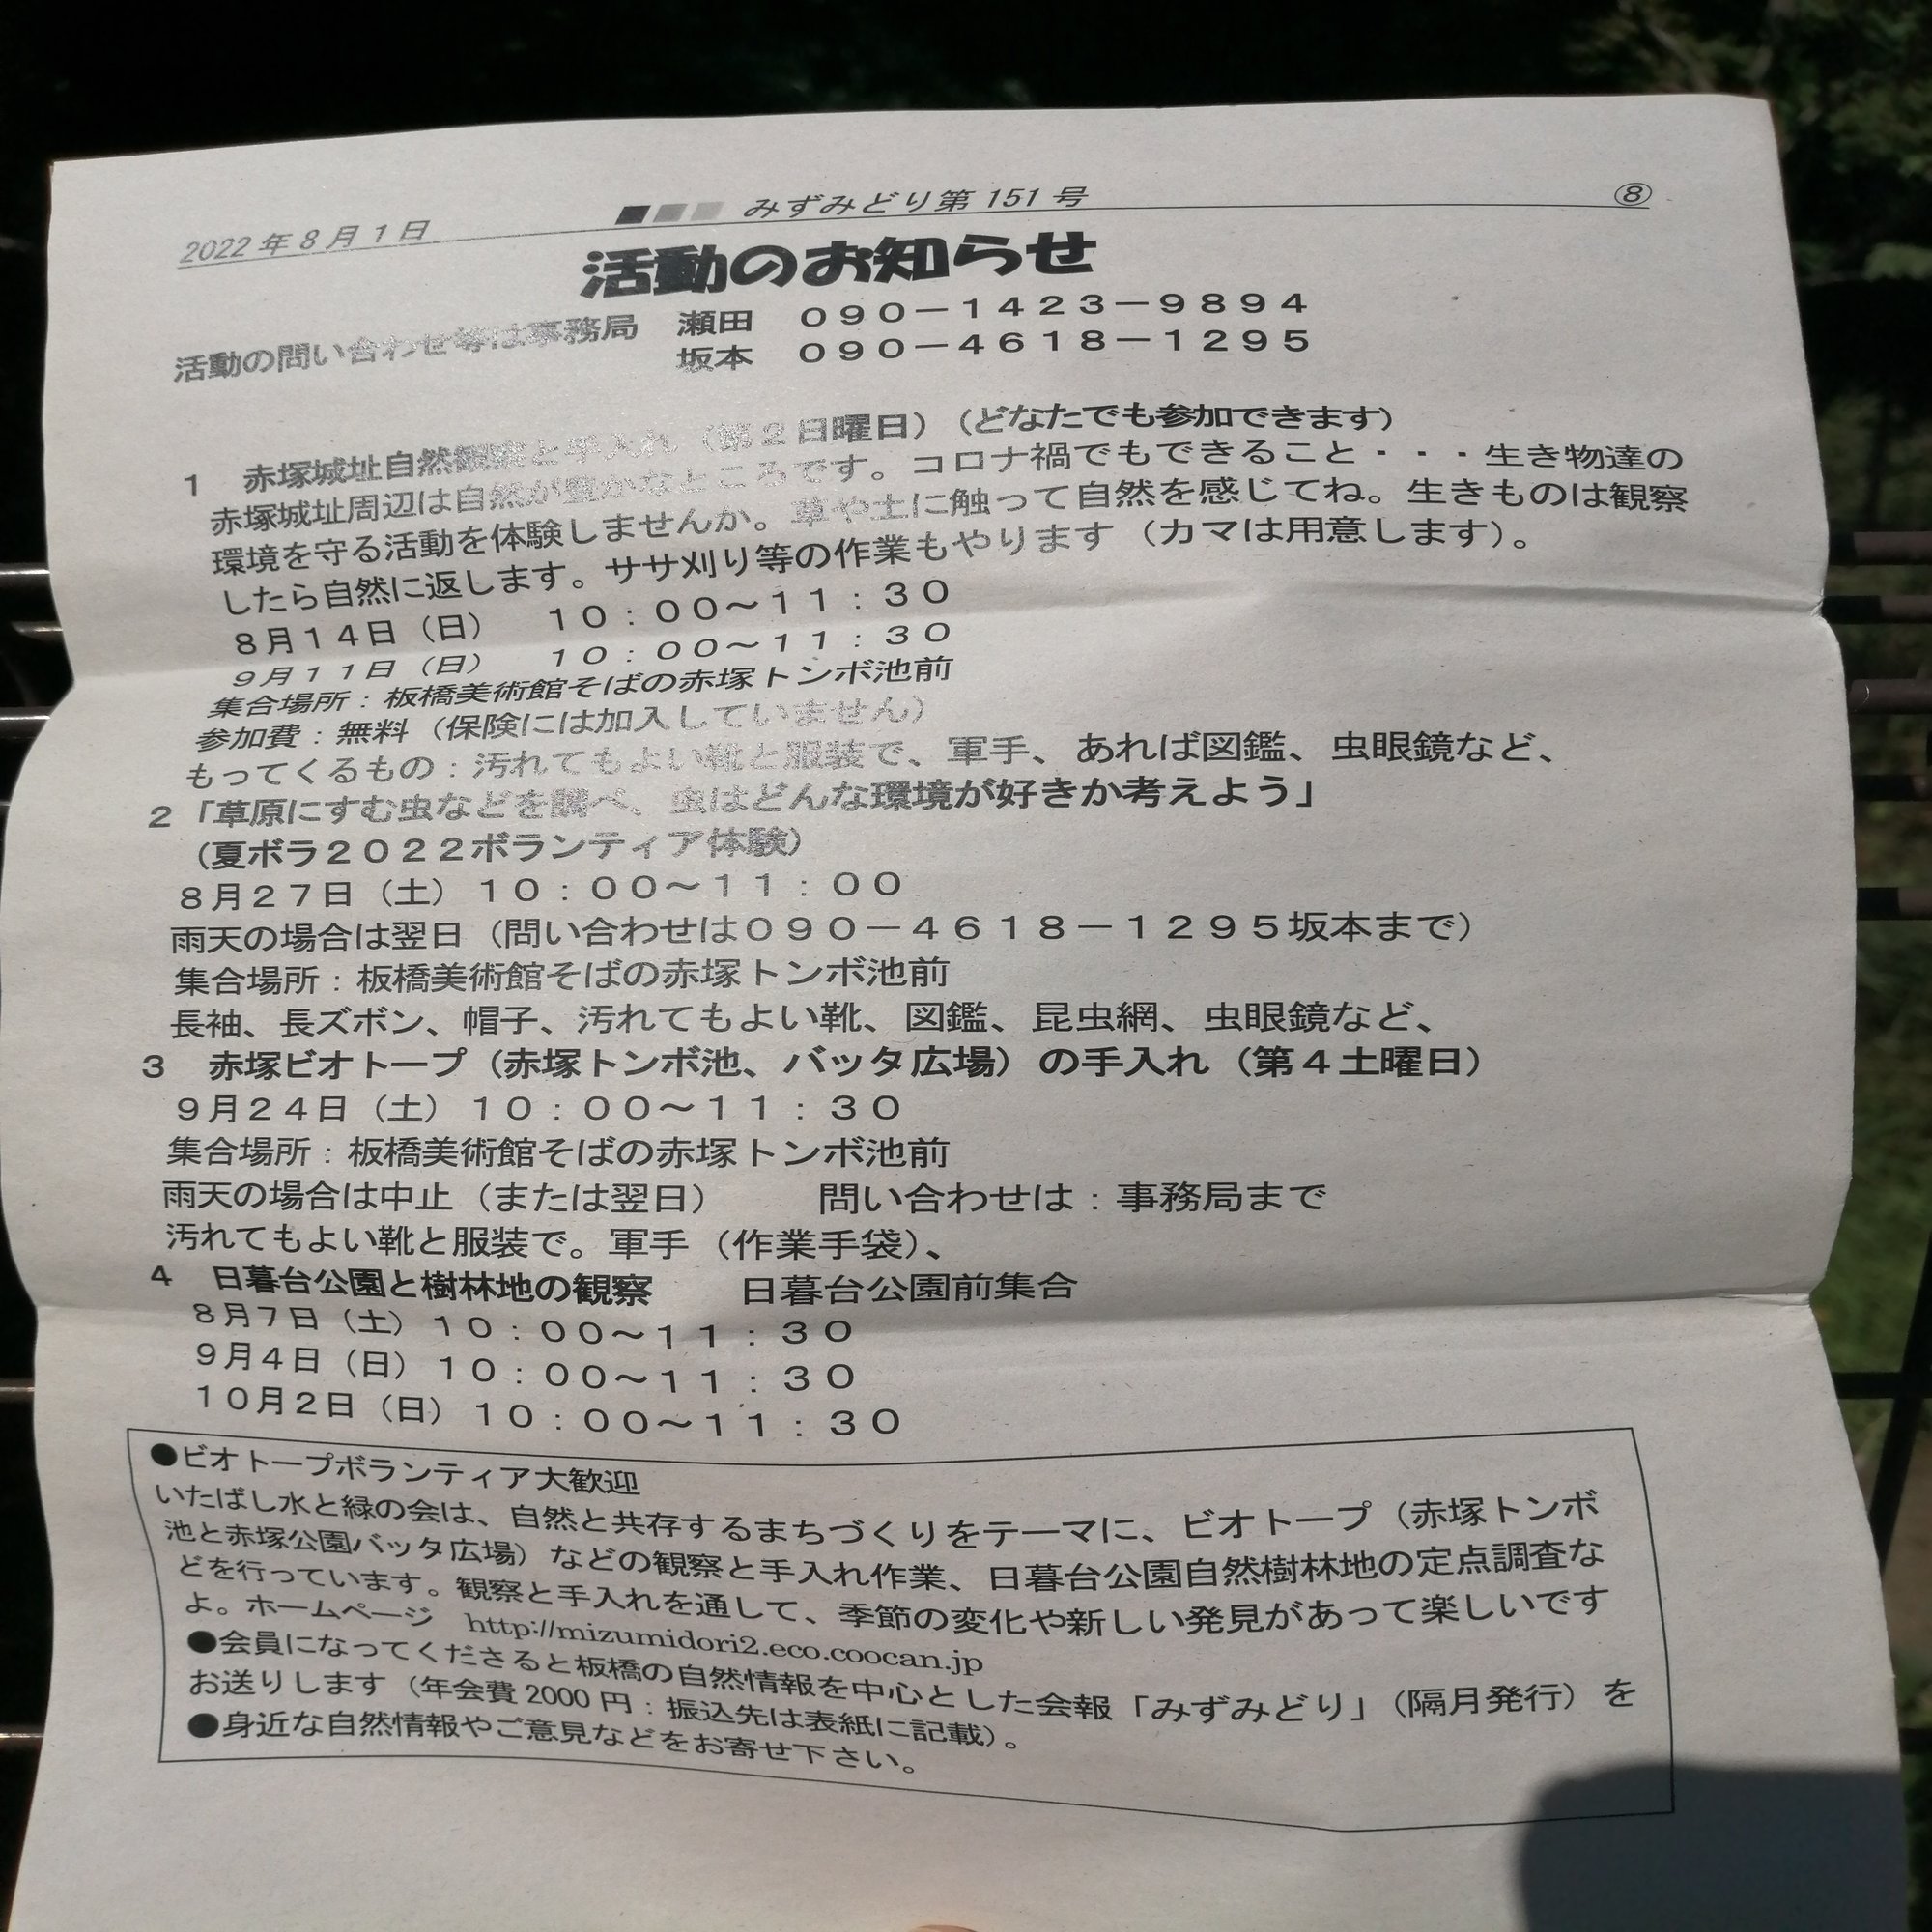 2022年8月1日 みずみどり第151号 ⑧
活動のお知らせ
活動の問い合わせ等は事務局 瀬田 090－1423－9894
坂本 090－4618－1295
1 赤塚城址自然観察と手入れ（第2日曜日）（どなたでも参加できます）
赤塚城址周辺は自然が豊かなところです。コロナ禍でもできること・・・生き物達の
環境を守る活動を体験しませんか。草や土に触って自然を感じてね。生きものは観察
したら自然に返します。ササ刈り等の作業もやります（カマは用意します）。
8月14日（日） 10：00～11：30
9月11日（日） 10：00～11：30
集合場所：板橋美術館そばの赤塚トンボ池前
参加費：無料（保険には加入していません）
もってくるもの：汚れてもよい靴と服装で、軍手、あれば図鑑、虫眼鏡など、
2 「草原にすむ虫などを調べ、虫はどんな環境が好きか考えよう」
（夏ボラ2022ボランティア体験）
8月27日（土）10：00～11：00
雨天の場合は翌日（問い合わせは090－4618－1295坂本まで）
集合場所：板橋美術館そばの赤塚トンボ池前
長袖、長ズボン、帽子、汚れてもよい靴、図鑑、昆虫網、虫眼鏡など、
3 赤塚ビオトープ（赤塚トンボ池、バッタ広場）の手入れ（第4土曜日）
9月24日（土）10：00～11：30
集合場所：板橋美術館そばの赤塚トンボ池前
雨天の場合は中止（または翌日） 問い合わせは：事務局まで
汚れてもよい靴と服装で。軍手（作業手袋）、
4 日暮台公園と樹林地の観察 日暮台公園前集合
8月7日（土）10：00～11：30
9月4日（日）10：00～11：30
10月2日（日）10：00～11：30
●ビオトープボランティア大歓迎
いたばし水と緑の会は、自然と共存するまちづくりをテーマに、ビオトープ（赤塚トンボ
池と赤塚公園バッタ広場）などの観察と手入れ作業、日暮台公園自然樹林地の定点調査な
どを行っています。観察と手入れを通して、季節の変化や新しい発見があって楽しいです
よ。ホームページ http://mizumidori2.eco.coocan.jp
●会員になってくださると板橋の自然情報を中心とした会報「みずみどり」（隔月発行）を
お送りします（年会費2000円：振込先は表紙に記載）。
●身近な自然情報やご意見などをお寄せ下さい。